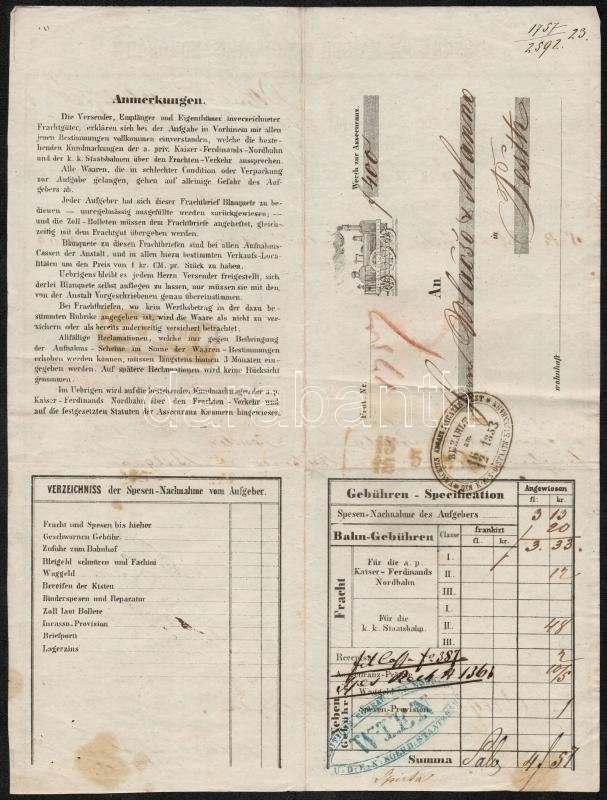 1757
2592. 23.
Anmerkungen.
Die Versender, Empfänger und Eigenthümer inverzeichneter
Frachtgüter, erklären sich bei der Aufgabe in Vorhinein mit allen
jenen Bestimmungen vollkommen einverstanden, welche die beste-
henden Kundmachungen der a. priv. Kaiser-Ferdinands-Nordbahn
und der k. k. Staatsbahnen über den Frachten-Verkehr aussprechen.
Alle Waaren, die in schlechter Condition oder Verpackung
zur Aufgabe gelangen, gehen auf alleinige Gefahr des Auf-
gebers ab.
Jeder Aufgeber hat sich dieser Frachtbrief Blanquete zu be-
dienen — unregelmässig ausgefüllte werden zurückgewiesen; —
und die Zoll-Bolleten müssen dem Frachtbriefe angeheftet, gleich-
zeitig mit dem Frachtgut übergeben werden.
Blanquete zu diesen Frachtbriefen sind bei allen Aufnahms-
Cassen der Anstalt, und in allen hiezu bestimmten Verkaufs-Loca-
litäten um den Preis von 1 kr. CM. pr. Stück zu haben.
Uebrigens bleibt es jedem Herrn Versender freigestellt, sich
derlei Blanquete selbst auflegen zu lassen, nur müssen sie mit den,
von der Anstalt Vorgeschriebenen genau übereinstimmen.
Bei Frachtbriefen, wo kein Werthsbetrag in der dazu be-
stimmten Rubrike angegeben ist, wird die Waare als nicht zu ver-
sichern oder als bereits anderweitig versichert betrachtet.
Allfällige Reclamationen, welche nur gegen Beibringung
der Aufnahms-Scheine im Sinne der Waaren-Bestimmungen
erhoben werden können, müssen längstens binnen 3 Monaten ein-
gegeben werden. Auf spätere Reclamationen wird keine Rücksicht
genommen.
Im Uebrigen wird auf die bestehenden Kundmachungen der a. p.
Kaiser-Ferdinands Nordbahn über den Frachten-Verkehr und
auf die festgesetzten Statuten der Assecuranz Kammern hingewiesen.
Werth zur Assecuranz.
f 400
An
in
wohnhaft
Frat. Nr.
1757
BEZAHLT
am
16
12 1853
VERZEICHNISS der Spesen-Nachnahme vom Aufgeber.
Fracht und Spesen bis hieher
Geschwornen Gebühr.
Zufuhr zum Bahnhof
Bleigeld schnüren und Fachini
Waggeld
Bereifen der Kisten
Binderspesen und Reparatur
Zoll laut Bollete
Incasso-Provision
Briefporti
Lagerzins
Gebühren - Specification
Angewiesen
fl. kr.
Spesen-Nachnahme des Aufgebers 3 13
Bahn-Gebühren
Classe
frankirt
fl. kr.
20
3. 33.
Fracht
Für die a. p.
Kaiser-Ferdinands
Nordbahn
I.
II. 12
III.
Für die
k. k. Staatsbahn
I.
II. 48
III.
Recepisse 2
Assecuranz-Prämie
Neben Gebühr
Waggeld
Spesen-Provision 1
WIEN
Summa
4 57
darabanth